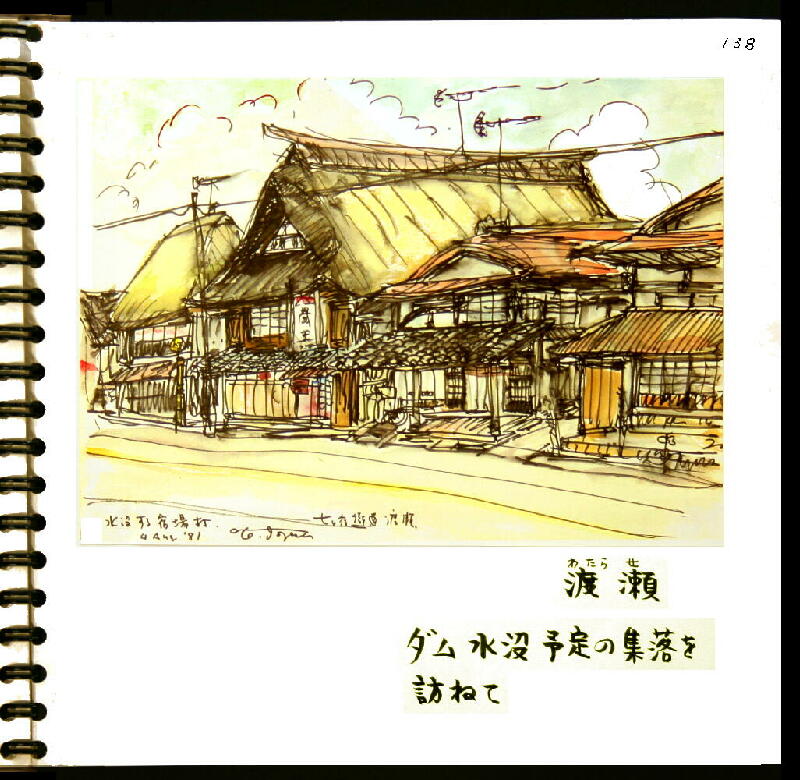 138
水没する宿場村.
七ヶ宿街道 渡瀬
4 AUG '81
わたらせ
渡瀬
ダム水没予定の集落を
訪ねて